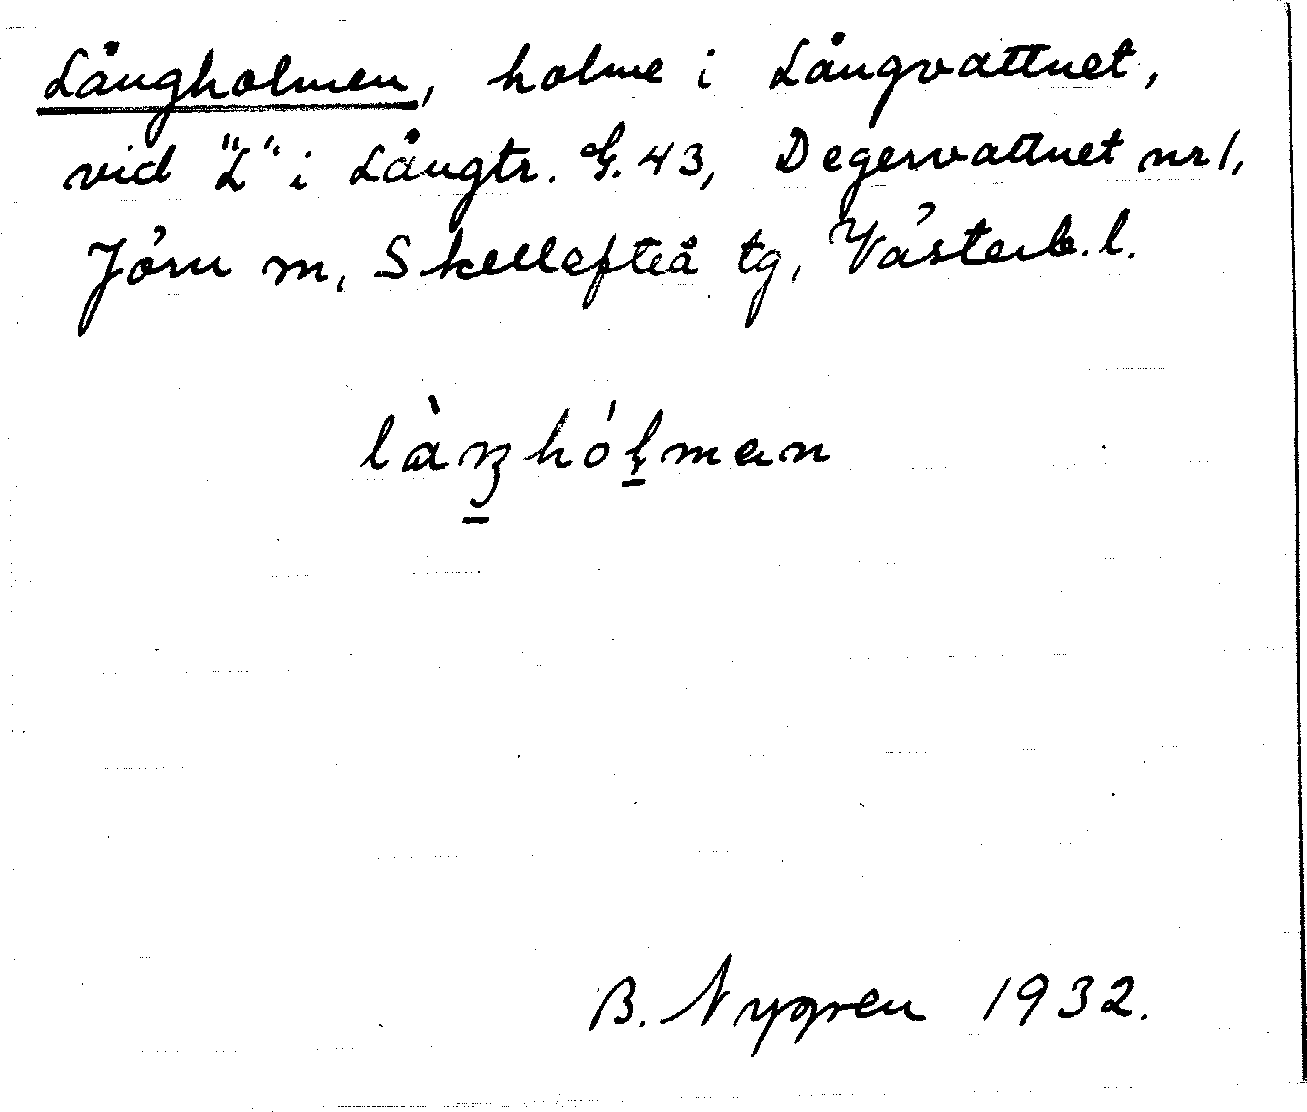 Långholmen, holme i Långvattnet,
vid "L" i Långtr. G. 43, Degervattnet nr 1,
Jörn m, Skellefteå tg, Västerb. l.
B. Nygren 1932.